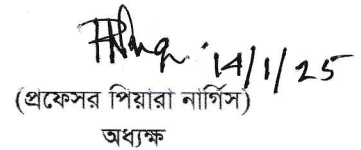 14/1/25
(প্রফেসর পিয়ারা নার্গিস)
অধ্যক্ষ